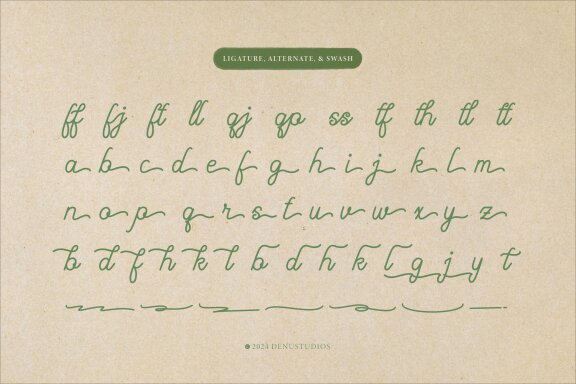 LIGATURE, ALTERNATE, & SWASH
ff fj ft ll qj qp ss tf th tl tt
a b c d e f g h i j k l m
n o p q r s t u v w x y z
b d f h k l b d h k l g j y t
© 2024 DENUSTUDIOS